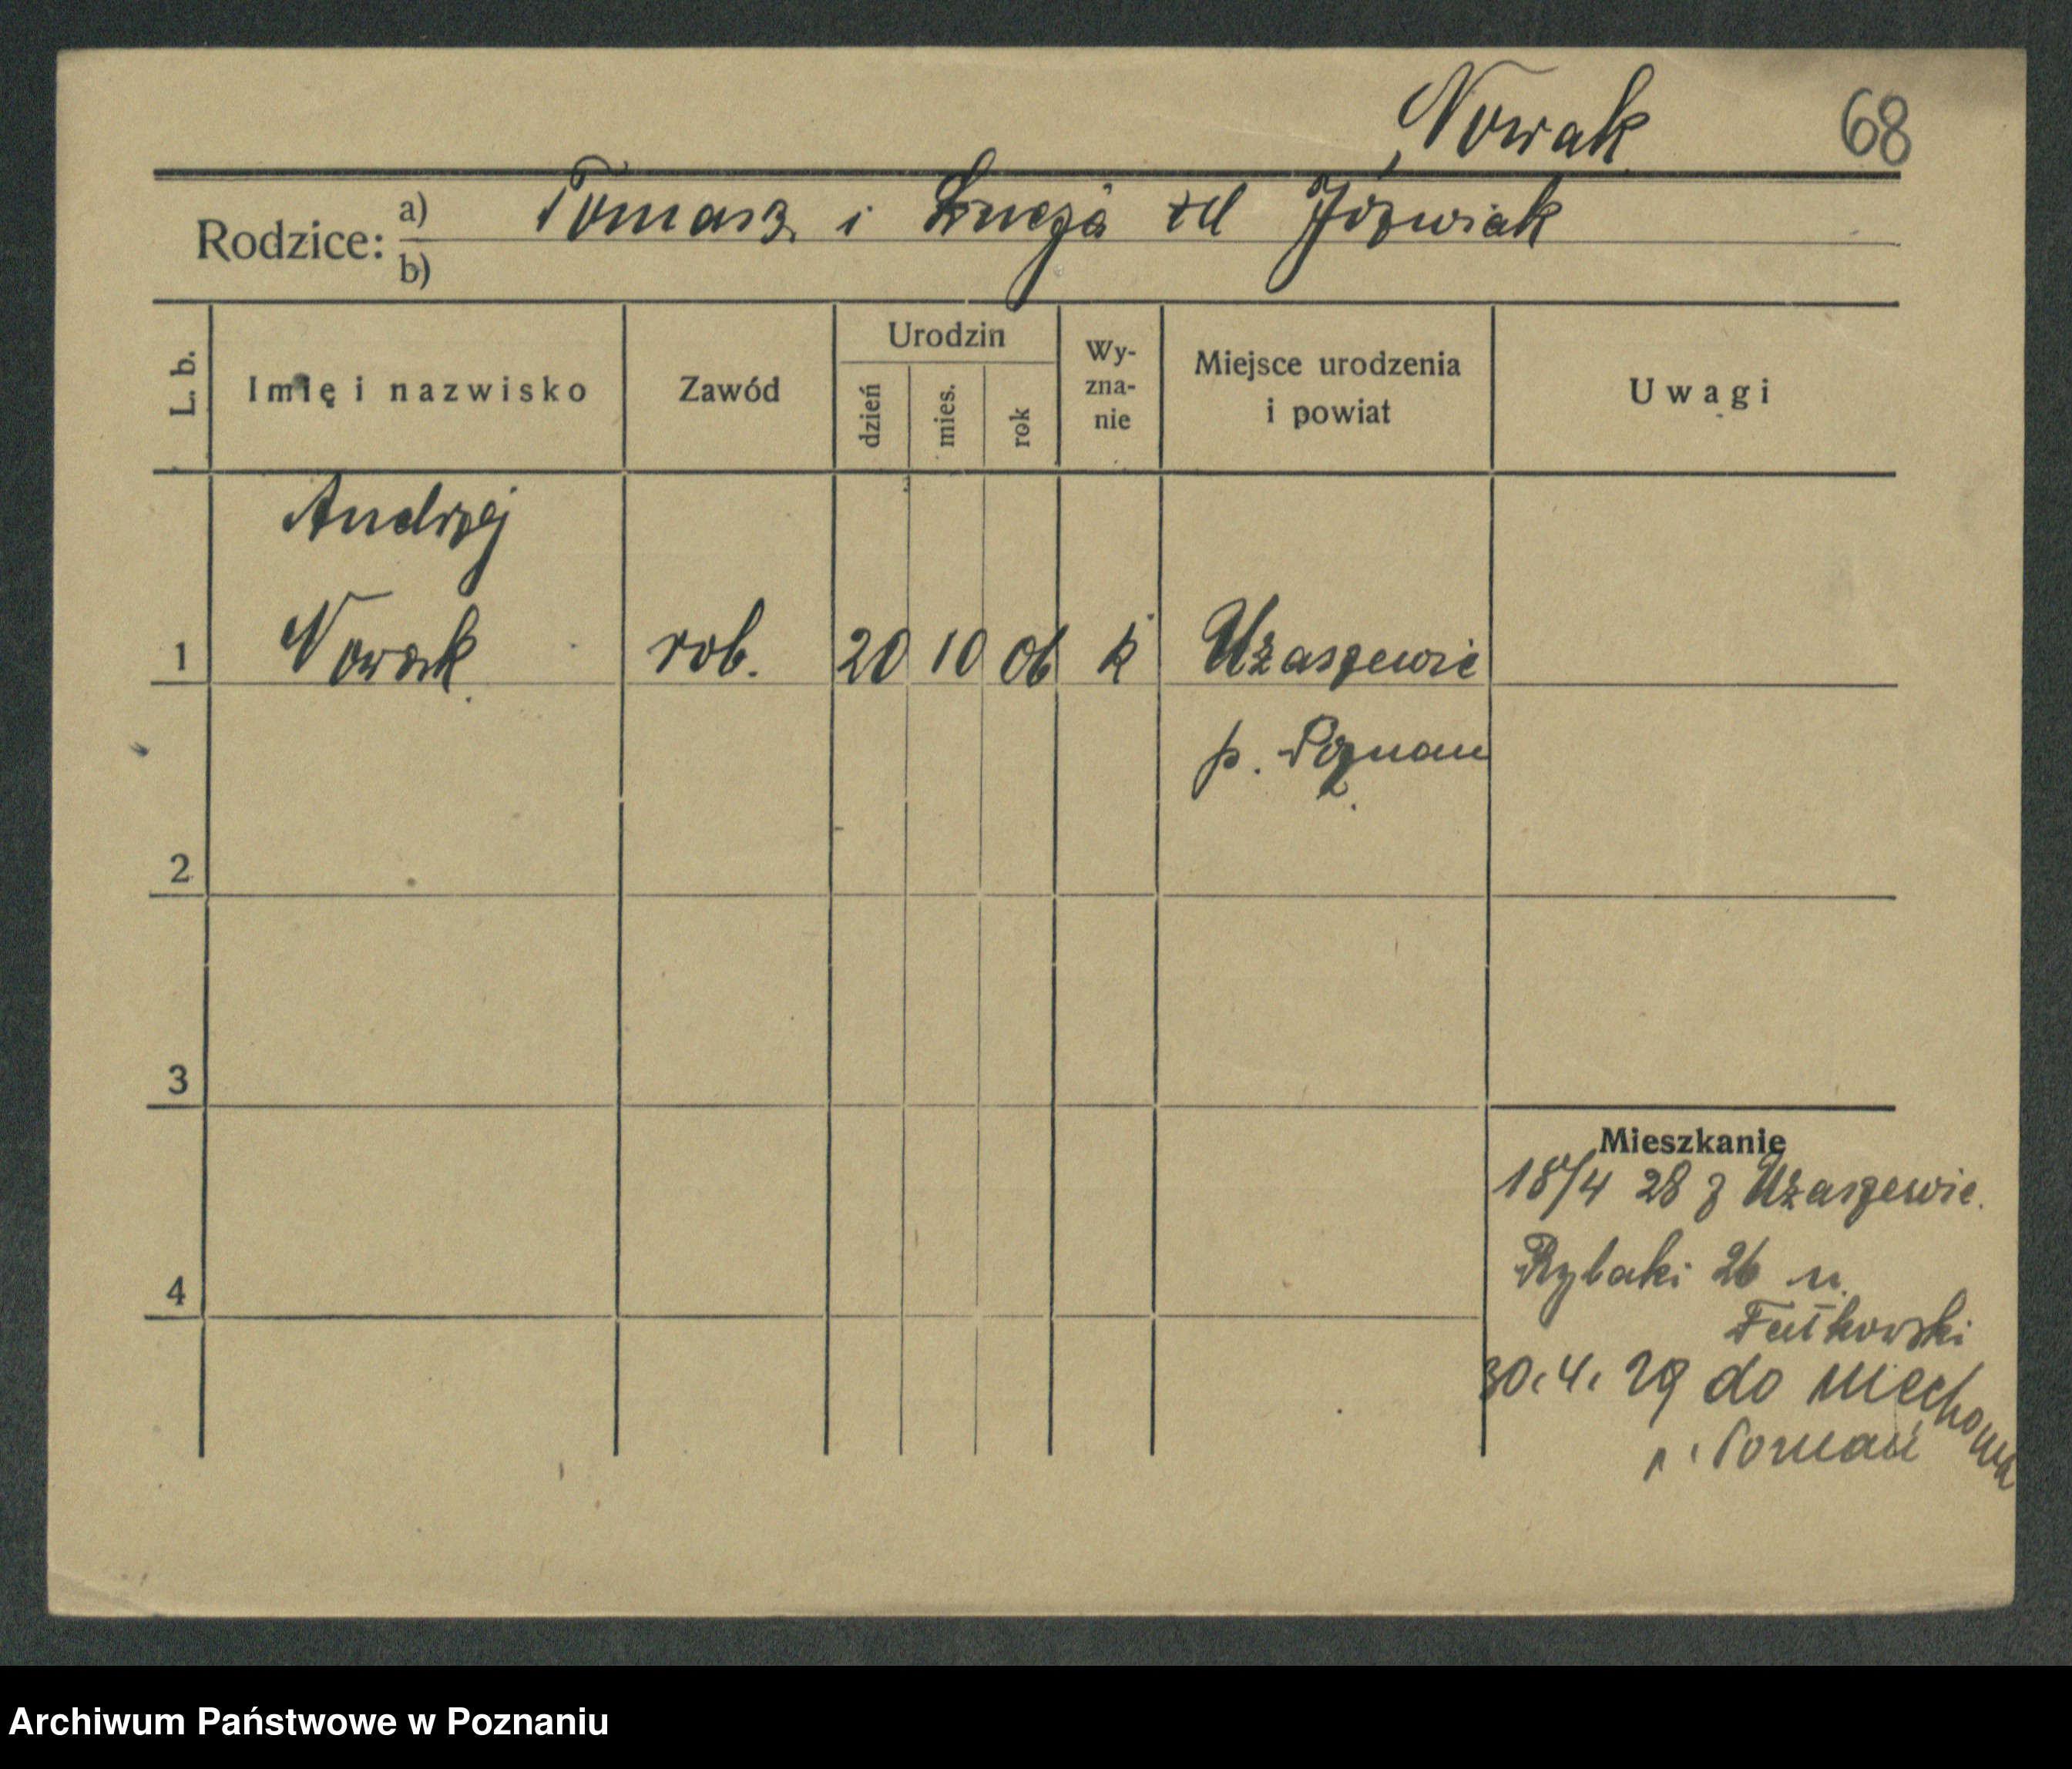 Nowak 68
Rodzice: a) Tomasz i Łucja zd Jóźwiak
b)
L. b. Imię i nazwisko Zawód Urodzin dzień mies. rok Wy-zna-nie Miejsce urodzenia i powiat Uwagi
Andrzej
1 Nowak rob. 20 10 06 k Użaszewic
p. Poznań
2
3
Mieszkanie
18/4 28 z Użaszewic.
Rybaki 26 u.
4
Fałkowski
30.4.29 do Miechowa
p. Poznań
Archiwum Państwowe w Poznaniu